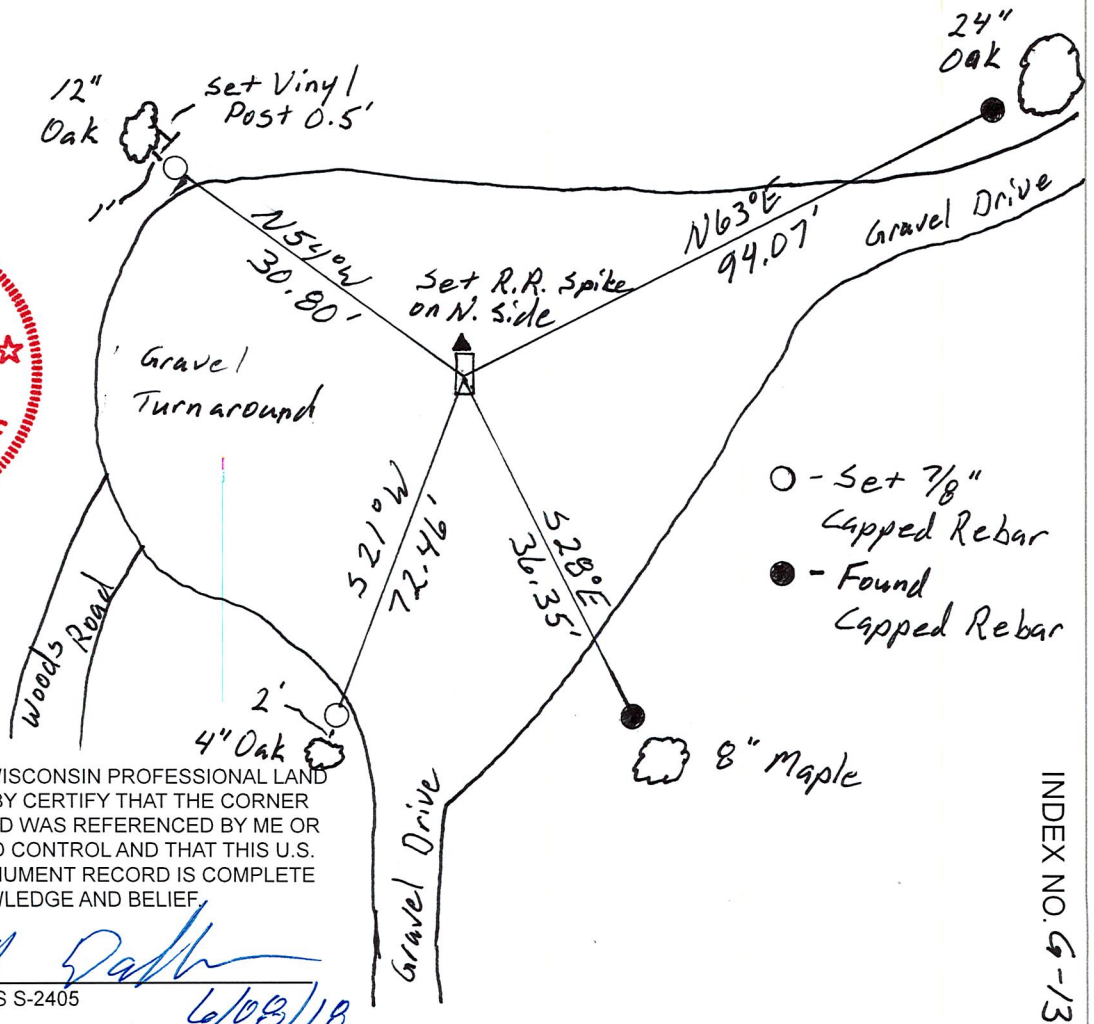 24"
Oak
12"
Oak
Set Vinyl
Post 0.5'
N63°E
94.07'
Gravel Drive
N54°W
30.80'
Set R.R. Spike
on N. Side
Gravel
Turnaround
S21°W
72.46'
S28°E
36.35'
○ - Set 7/8"
Capped Rebar
● - Found
Capped Rebar
Woods Road
2'
4" Oak
8" Maple
Gravel Drive
WISCONSIN PROFESSIONAL LAND
BY CERTIFY THAT THE CORNER
D WAS REFERENCED BY ME OR
D CONTROL AND THAT THIS U.S.
NUMENT RECORD IS COMPLETE
WLEDGE AND BELIEF.
S S-2405
6/08/18
INDEX NO. G-13